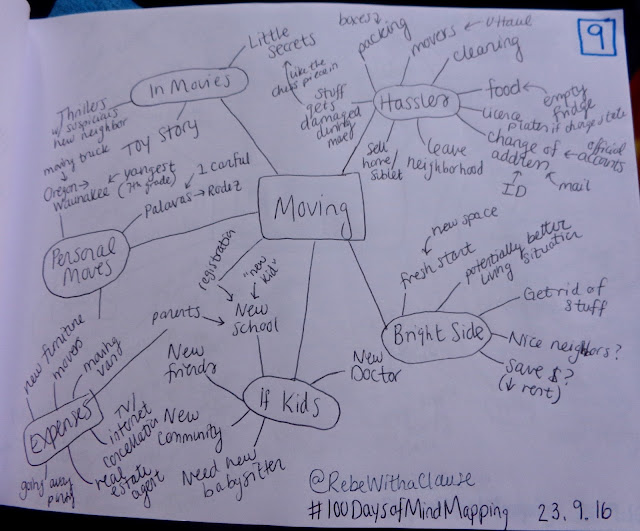 9
Moving
In Movies
Little
Secrets
Like the
chess piece in
Thrillers
w/ suspicious
new neighbor
TOY STORY
Hassles
boxes
packing
movers
U-Haul
cleaning
food
empty
fridge
plates if change state
change of
address
official
accounts
mail
ID
leave
neighborhood
Sell
home/
Sublet
stuff
gets
damaged
during
move
Personal
Moves
moving truck
Oregon →
Waunakee
yangest
(7th grade)
Palavas → Rodez
1 carful
Bright Side
fresh start
new space
potentially better
living situation
Get rid of
stuff
Nice neighbors?
save $?
(↓ rent)
If Kids
New
school
registration
"new
kid"
parents
New
friends
New
community
Need new
babysitter
New
Doctor
Expenses
new furniture
movers
moving
vans
TV/
internet
cancellation
real
estate
agent
going away
party
@RebeWithaClause
#100DaysofMindMapping
23.9.16